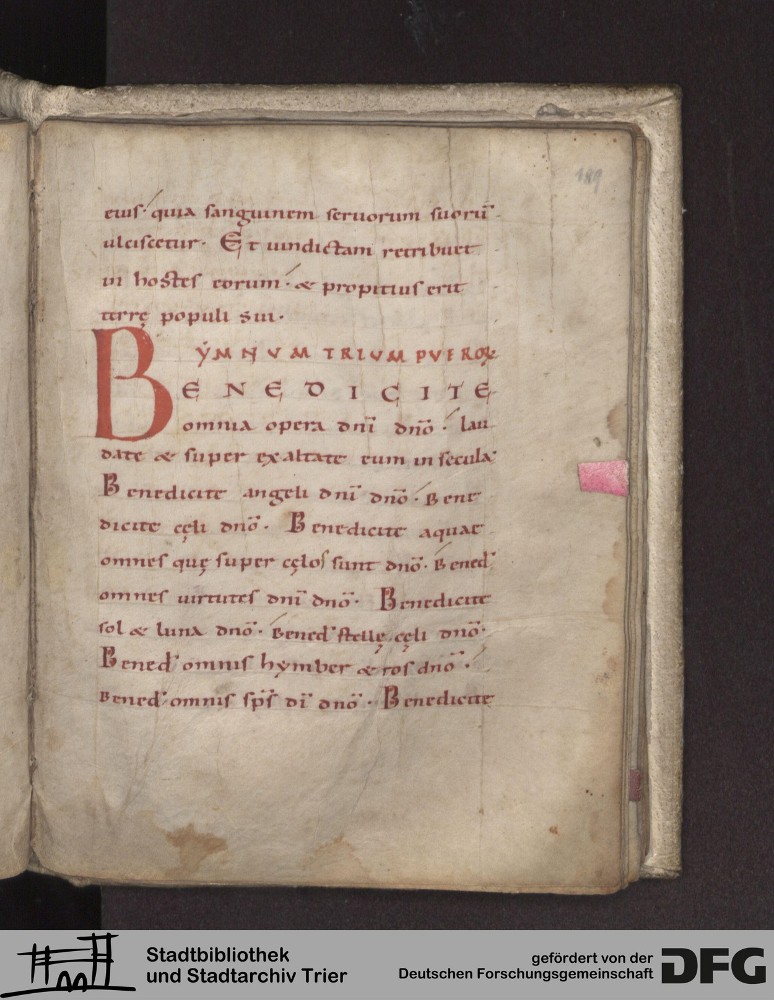 189
eius· quia sanguinem seruorum suorū
ulciscetur· Et uindictam retribuet
in hostes eorum· & propitius erit
terrę populi sui·
YMNUM TRIUM PUERORꝜ
BENEDICITE
omnia opera dnī dnō· lau
date & super exaltate eum in secula·
Benedicite angeli dnī dnō· Bene
dicite cęli dnō· Benedicite aquae
omnes quę super cęlos sunt dnō· Bened'
omnes uirtutes dnī dnō· Benedicite
sol & luna dnō· Bened' stellę cęli dnō·
Bened' omnis hymber & ros dnō·
Bened' omnis sp̄s dī dnō· Benedicite
Stadtbibliothek
und Stadtarchiv Trier
gefördert von der
Deutschen Forschungsgemeinschaft
DFG